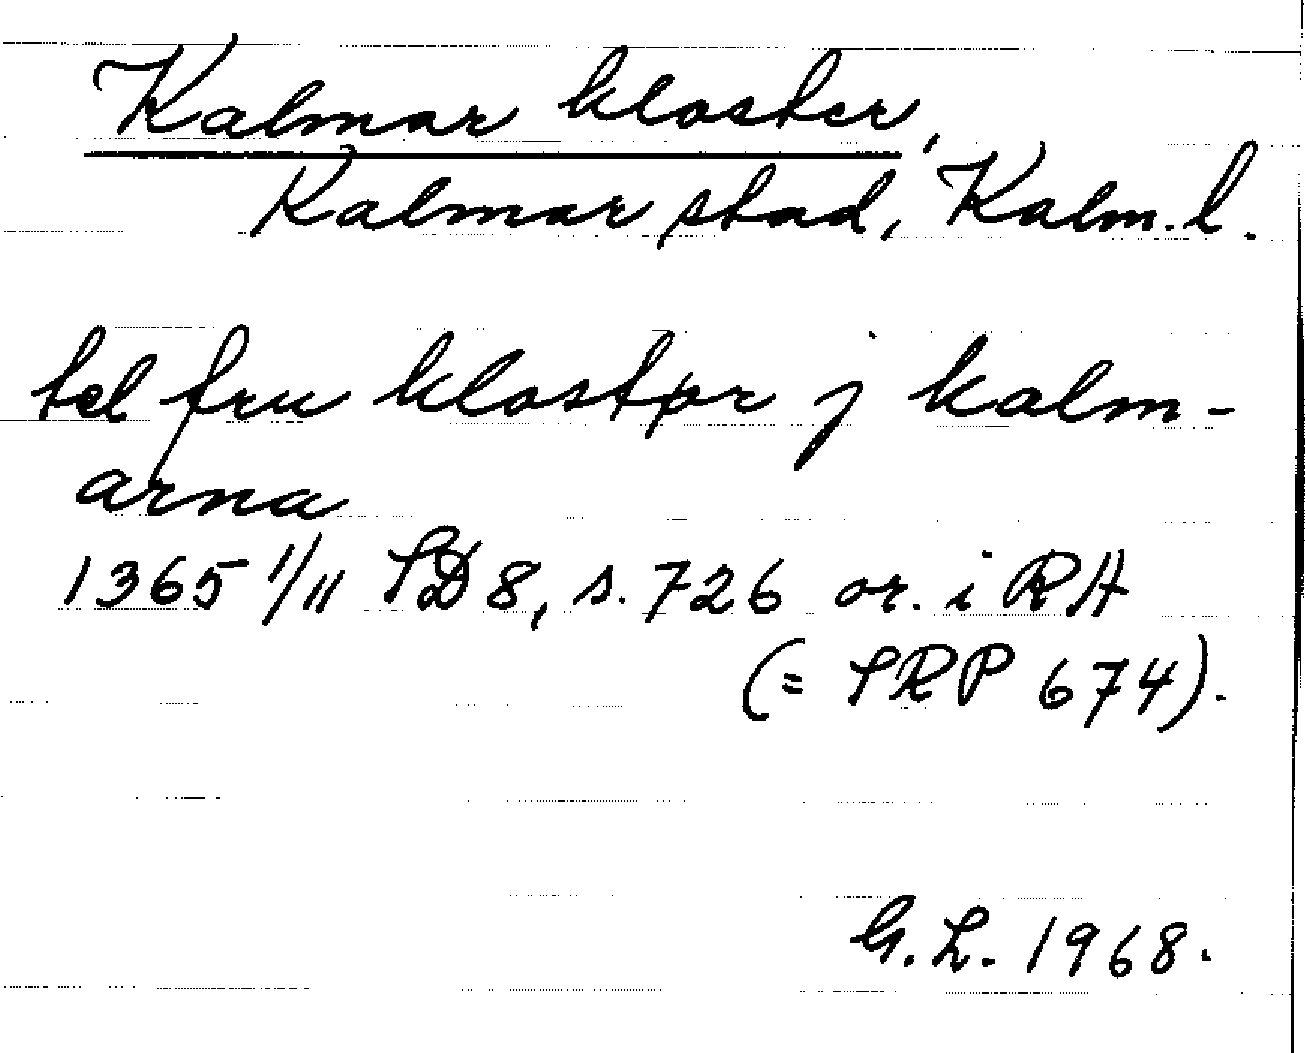 Kalmar kloster,
Kalmar stad, Kalm. l.
tel fru klostþr j kalm-
arna
1365 1/11 SD 8, s. 726 or. i RA
(= SRP 674).
G.L. 1968.